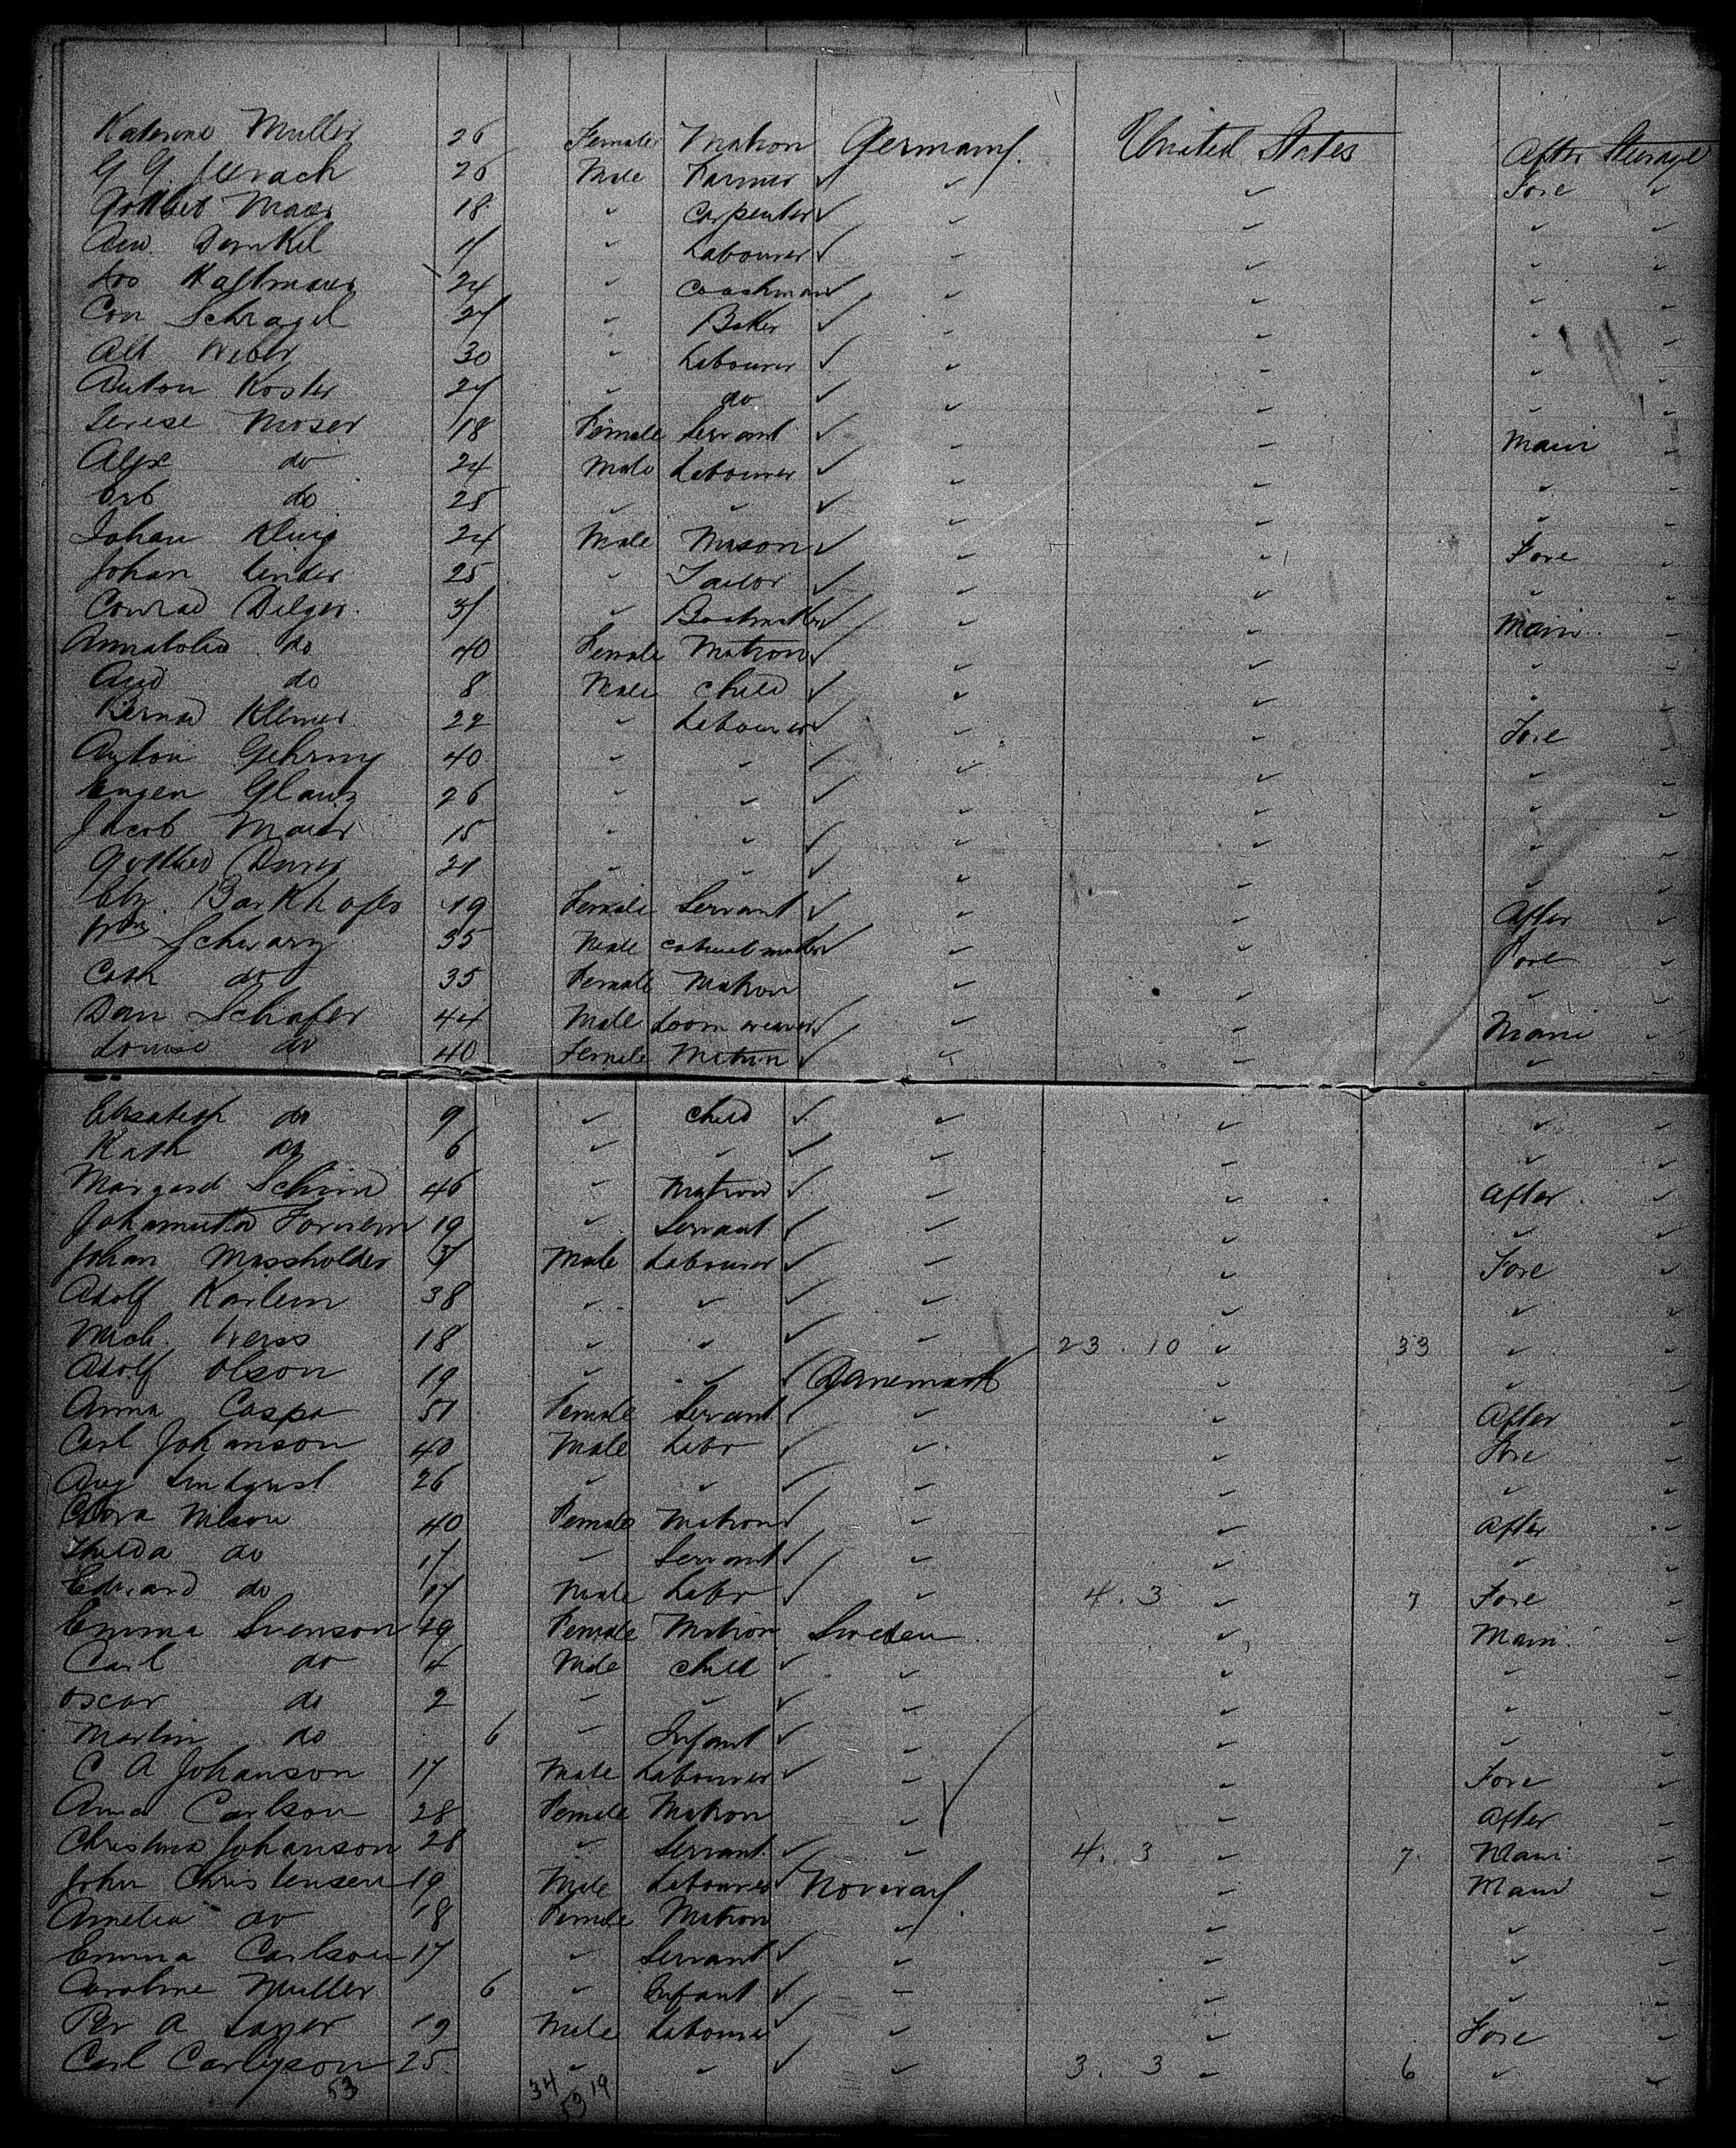 Katerine Muller 26 Female Matron Germany. United States After Steerage
G G. 26 Male Farmer ✓ ✓ ✓ Fore ✓
Gottlieb Maas 18 ✓ Carpenter ✓ ✓ ✓ ✓ ✓
Denkel ✓ Labourer ✓ ✓ ✓ ✓ ✓
Jos 24 ✓ Coachman ✓ ✓ ✓ ✓ ✓
Con Schragel 27 ✓ Baker ✓ ✓ ✓ ✓ ✓
Alt Weber 30 ✓ Labourer ✓ ✓ ✓ ✓ ✓
Anton Koster 27 ✓ do ✓ ✓ ✓ ✓ ✓
Terese Moser 18 Female Servant ✓ ✓ ✓ Main ✓
Alfx do 24 Male Labourer ✓ ✓ ✓ ✓ ✓
do 25 ✓ ✓ ✓ ✓ ✓ ✓ ✓
Johan 24 Male Mason ✓ ✓ ✓ Fore ✓
Johan 25 ✓ Tailor ✓ ✓ ✓ ✓ ✓
Conrad Dilger. 31 ✓ Bootmaker ✓ ✓ ✓ Main ✓
do 40 Female Matron ✓ ✓ ✓ ✓ ✓
do 8 Male child ✓ ✓ ✓ ✓ ✓
Bernad Klemer 22 ✓ Labourer ✓ ✓ ✓ Fore ✓
Anton Gehrny 40 ✓ ✓ ✓ ✓ ✓ ✓ ✓
Eugen Glanz 26 ✓ ✓ ✓ ✓ ✓ ✓ ✓
Jacob Maier 15 ✓ ✓ ✓ ✓ ✓ ✓ ✓
Gottlieb 21 ✓ ✓ ✓ ✓ ✓ ✓ ✓
Barkhofts 19 Female Servant ✓ ✓ ✓ After ✓
Wm Schwarz 35 Male cabinet maker ✓ ✓ ✓ Fore ✓
Cath do 35 Female Matron ✓ ✓ ✓ ✓
Dan Schafer 44 Male Loom weaver ✓ ✓ ✓ Main ✓
Louise do 40 Female Matron ✓ ✓ ✓ ✓ ✓
Elisabeth do 9 ✓ child ✓ ✓ ✓ ✓ ✓
Kath do 6 ✓ ✓ ✓ ✓ ✓ ✓ ✓
Margaret 46 ✓ Matron ✓ ✓ ✓ After ✓
19 ✓ Servant ✓ ✓ ✓ ✓ ✓
Johan Massholder 31 Male Labourer ✓ ✓ ✓ Fore ✓
Adolf Karlein 38 ✓ ✓ ✓ ✓ ✓ ✓ ✓
Mich. Weiss 18 ✓ ✓ ✓ ✓ 23. 10 ✓ 33 ✓ ✓
Adolf Olson 19 ✓ ✓ ✓ Danemark ✓ ✓ ✓
Anna Caspa 51 Female Servant ✓ ✓ ✓ After ✓
Carl Johanson 40 Male Labr ✓ ✓ ✓ Fore ✓
Aug Lindqust 26 ✓ ✓ ✓ ✓ ✓ ✓ ✓
Clara Nilson 40 Female Matron ✓ ✓ ✓ After ✓
Thilda do 17 ✓ Servant ✓ ✓ ✓ ✓ ✓
Edward do 17 Male Labr ✓ ✓ 4. 3 ✓ 7 Fore ✓
Emma Svenson 29 Female Matron Sweden ✓ Main ✓
Carl do 4 Male child ✓ ✓ ✓ ✓ ✓
Oscar do 2 ✓ ✓ ✓ ✓ ✓ ✓ ✓
Martin do 6 ✓ Infant ✓ ✓ ✓ ✓ ✓
C A Johanson 17 Male Labourer ✓ ✓ ✓ Fore ✓
Anna Carlson 28 Female Matron ✓ ✓ After ✓
Christina Johanson 28 ✓ Servant ✓ ✓ 4. 3 ✓ 7. Main ✓
John Christensen 19 Male Labourer ✓ Norway ✓ Main ✓
Amelia do 18 Female Matron ✓ ✓ ✓ ✓
Emma Carlson 17 ✓ Servant ✓ ✓ ✓ ✓ ✓
Caroline Muller 6 ✓ Infant ✓ ✓ ✓ ✓ ✓
Per A 19 Male Labourer ✓ ✓ ✓ Fore ✓
Carl Carlyson 25 ✓ ✓ ✓ ✓ 3. 3 ✓ 6 ✓ ✓
53 34 19
53